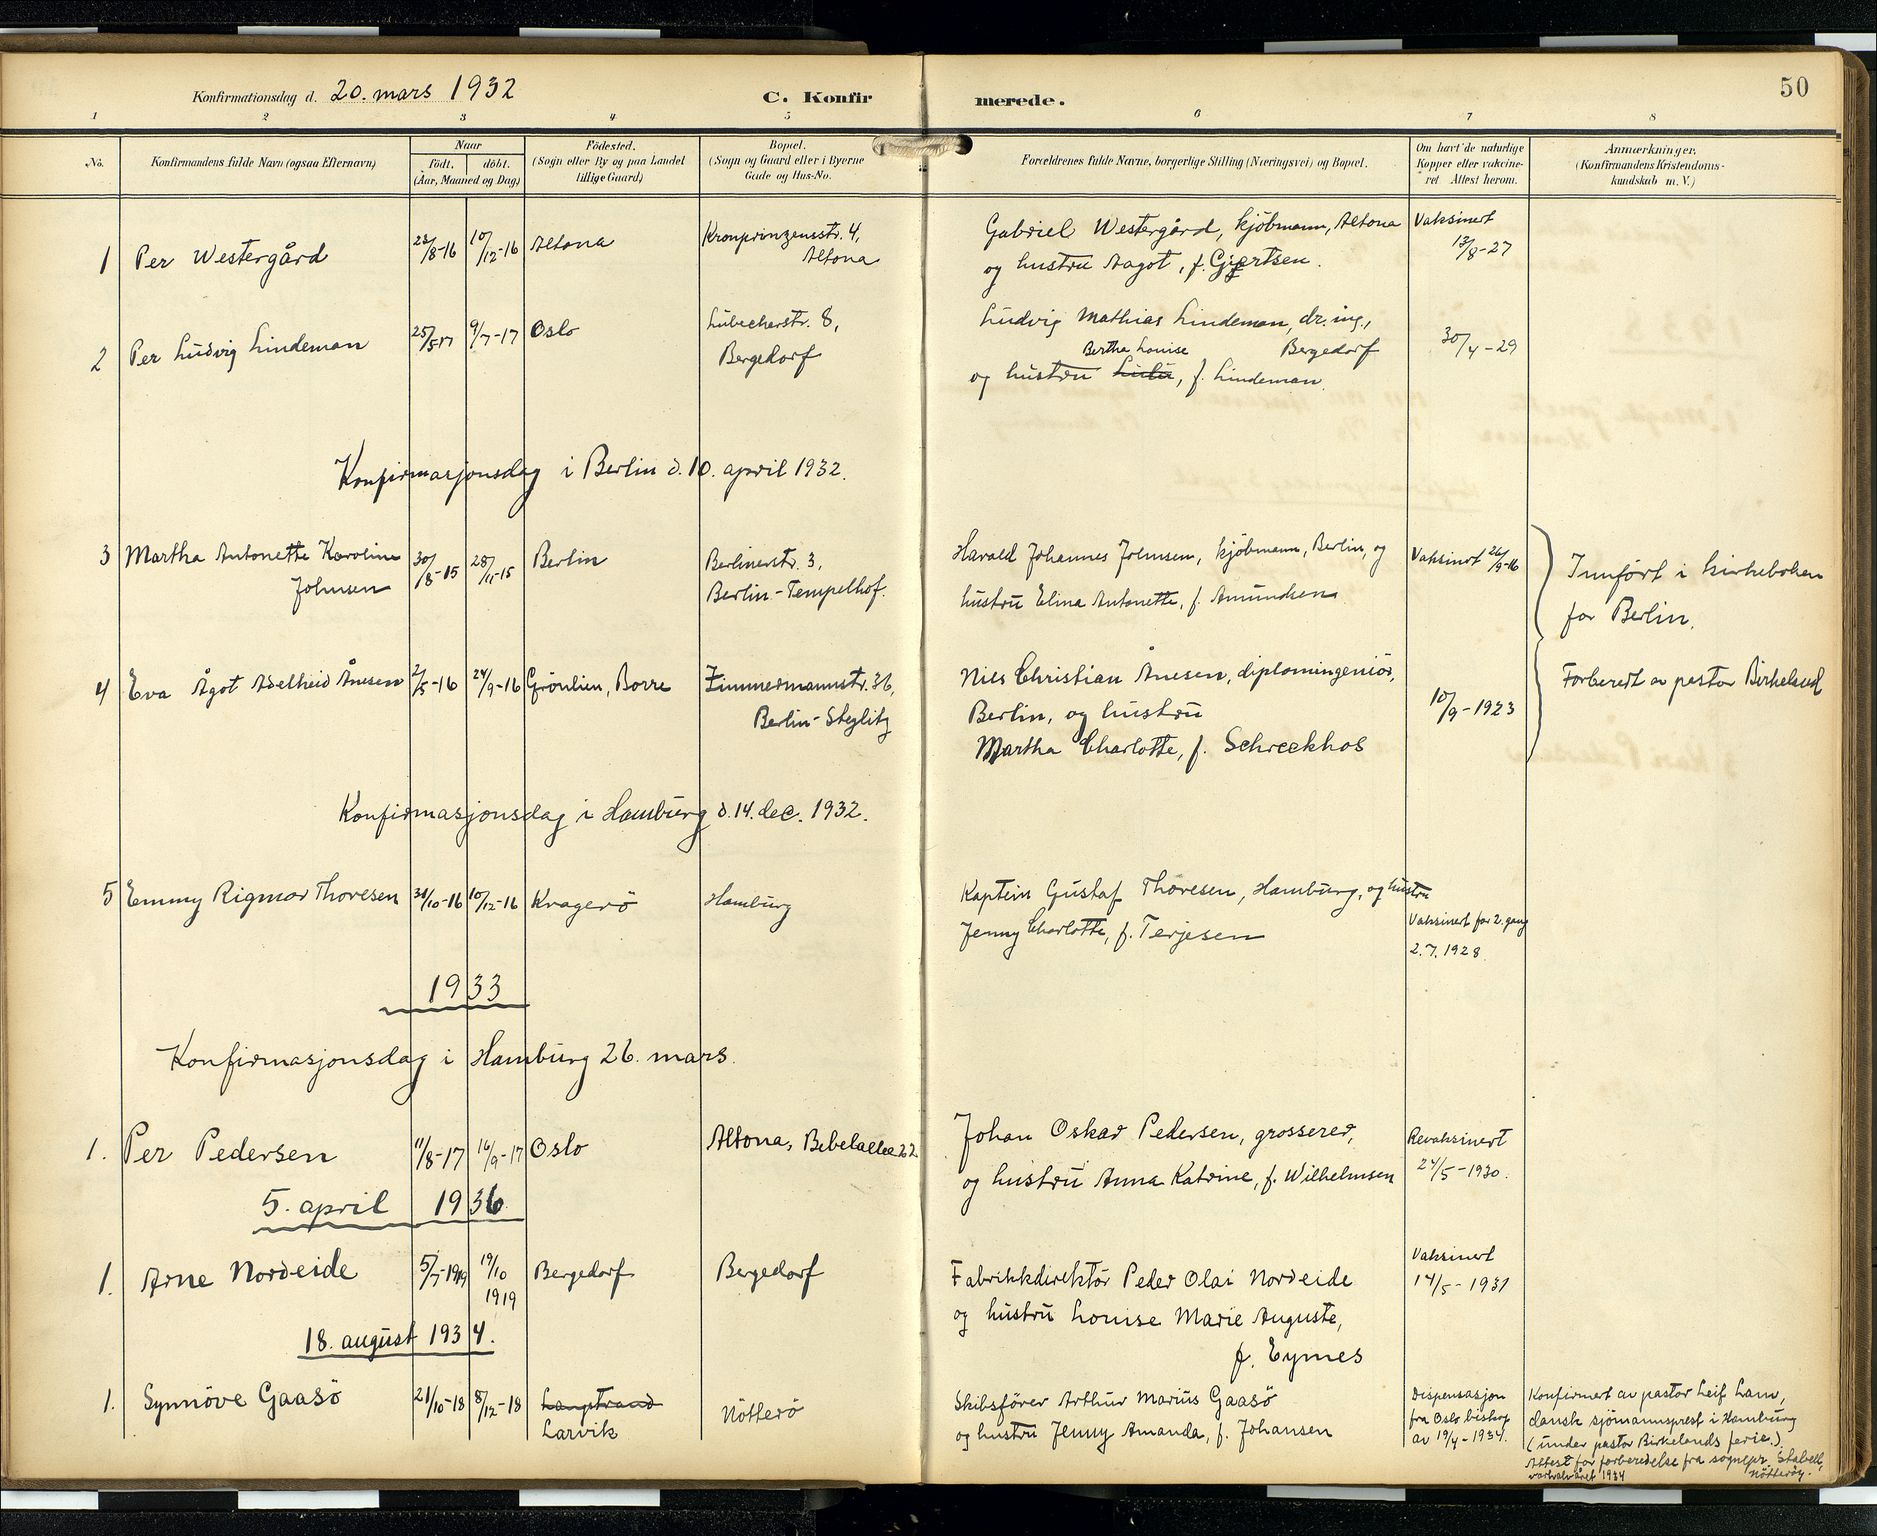 50
Konfirmationsdag d. 20. mars 1932
C. Konfirmerede.
1 2 3 4 5 6 7 8
No.
Konfirmandens fulde Navn (ogsaa Efternavn)
Naar
födt. döbt.
(Aar, Maaned og Dag)
Födested.
(Sogn eller By og paa Landet
tillige Gaard)
Bopæl.
(Sogn og Gaard eller i Byerne
Gade og Hus-No.
Forældrenes fulde Navne, borgerlige Stilling (Næringsvei) og Bopæl.
Om havt de naturlige
Kopper eller vakcine-
ret Attest herom.
Anmærkninger.
(Konfirmandens Kristendoms-
kundskab m. V.)
1 Per Westergård 23/8-16 10/12-16 Altona Kronprinzensstr. 4,
Altona
Gabriel Westergård, kjöbmann, Altona
og hustru Aagot, f. Gjertsen.
Vaksinert
13/8-27
2 Per Ludvig Lindeman 25/5 17 9/7-17 Oslo Lübeckerstr. 8,
Bergedorf
Ludvig Mathias Lindeman, dr. ing.,
Bertha Louise Bergedorf
og hustru Lulu, f. Lindeman.
30/4-29
Konfirmasjonsdag i Berlin d. 10. april 1932.
3 Martha Antonette Karoline
Johnsen
30/8-15 28/11-15 Berlin Berlinerstr. 3,
Berlin-Tempelhof.
Harald Johannes Johnsen, kjöbmann, Berlin, og
hustru Elina Antonette, f. Amundsen
Vaksinert 26/9-16
Innfört i kirkeboken
for Berlin.
4 Eva Ågot Adelheid Ånesen 2/5-16 24/9-16 Grönlien, Borre Zimmermannstr. 36,
Berlin-Steglitz
Niels Christian Ånesen, diplomingeniör,
Berlin, og hustru
Martha Charlotte, f. Schreckhos
10/9-1923
Forberedt av pastor Birkeland
Konfirmasjonsdag i Hamburg d. 14. dec. 1932.
5 Emmy Rigmor Thoresen 31/10-16 10/12-16 Kragerö Hamburg
Kaptein Gustaf Thoresen, Hamburg, og hustru
Jenny Charlotte, f. Terjesen
Vaksinert for 2. gang
2.7.1928.
1933
Konfirmasjonsdag i Hamburg 26. mars.
1. Per Pedersen 11/8-17 16/9-17 Oslo Altona, Bebelallee 22
Johan Oskar Pedersen, grosserer,
og hustru Anna Katrine, f. Wilhelmsen
Revaksinert
24/5-1930.
5. april 1936.
1. Arne Nordeide 5/7-1919 19/10
1919
Bergedorf Bergedorf
Fabrikkdirektör Peder Olai Nordeide
og hustru Louise Marie Auguste,
f. Eymes
Vaksinert
14/5-1931
18. august 1934.
1. Synnöve Gaasö 21/10-18 8/12-18 Langstrand
Larvik
Nötterö
Skibsförer Arthur Marius Gaasö
og hustru Jenny Amanda, f. Johansen
Dispensasjon
fra Oslo biskop
av 19/4-1934.
Konfirmert av pastor Leif Lam,
dansk sjömannsprest i Hamburg
(under pastor Birkelands ferie.)
Attest for forberedelse fra sognepr. Stabell,
Nötteröy.
1934